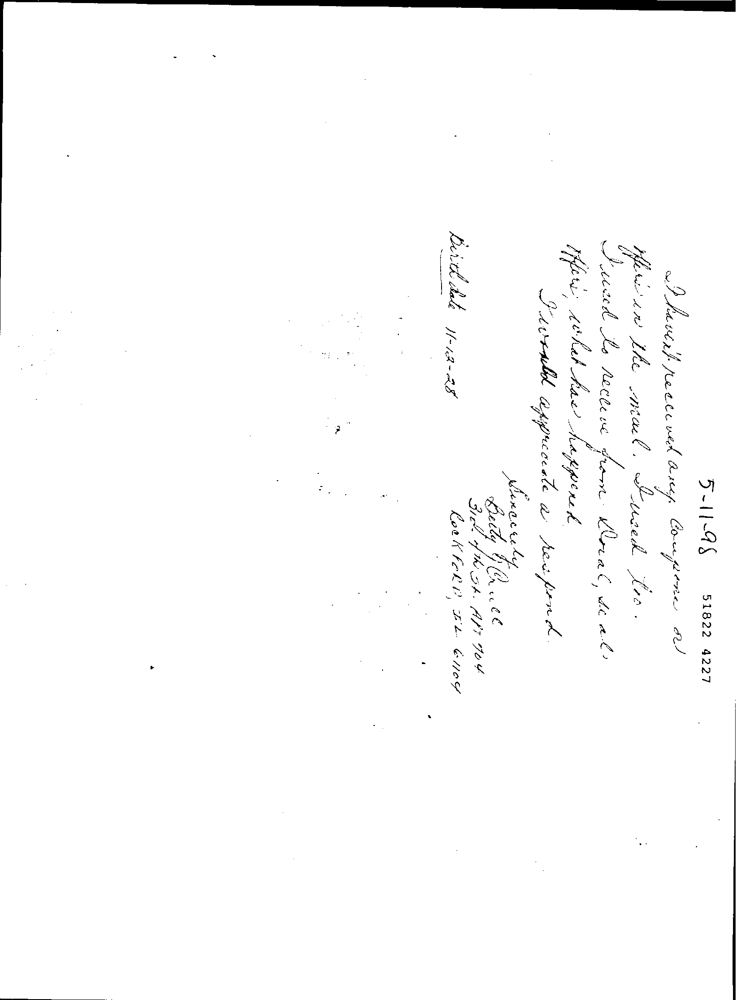 5-11-98
51822 4227
I haven't received any Coupons or
offers in the mail. I used too.
I used to receive from Doral, seals
offers, what has happened
I would appreciate a respond.
Sincerely
Betty
310 7th St. APT 704
Rockford, IL 61104
Birth date 11-12-28